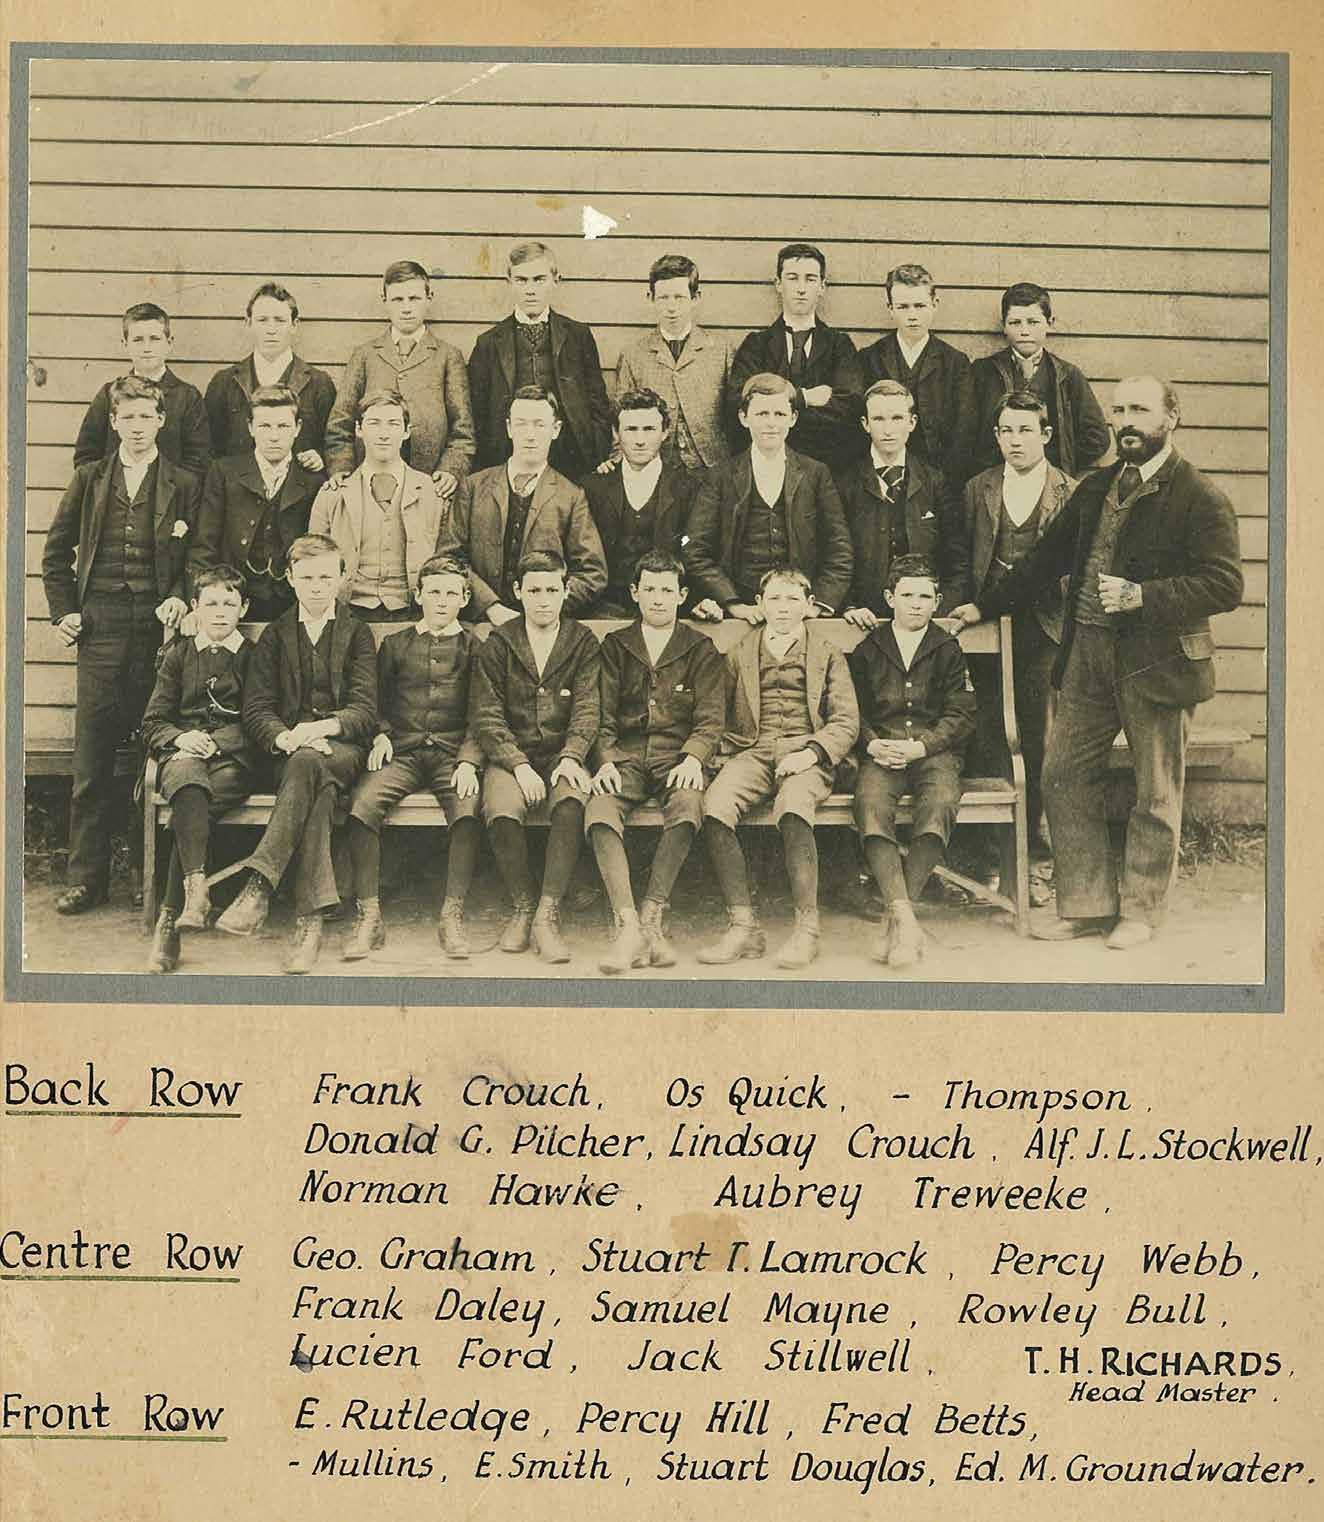 Back Row Frank Crouch, Os Quick, - Thompson,
Donald G. Pilcher, Lindsay Crouch, Alf. J. L. Stockwell,
Norman Hawke, Aubrey Treweeke,
Centre Row Geo. Graham, Stuart T. Lamrock, Percy Webb,
Frank Daley, Samuel Mayne, Rowley Bull,
Lucien Ford, Jack Stillwell, T. H. RICHARDS,
Head Master.
Front Row E. Rutledge, Percy Hill, Fred Betts,
- Mullins, E. Smith, Stuart Douglas, Ed. M. Groundwater.